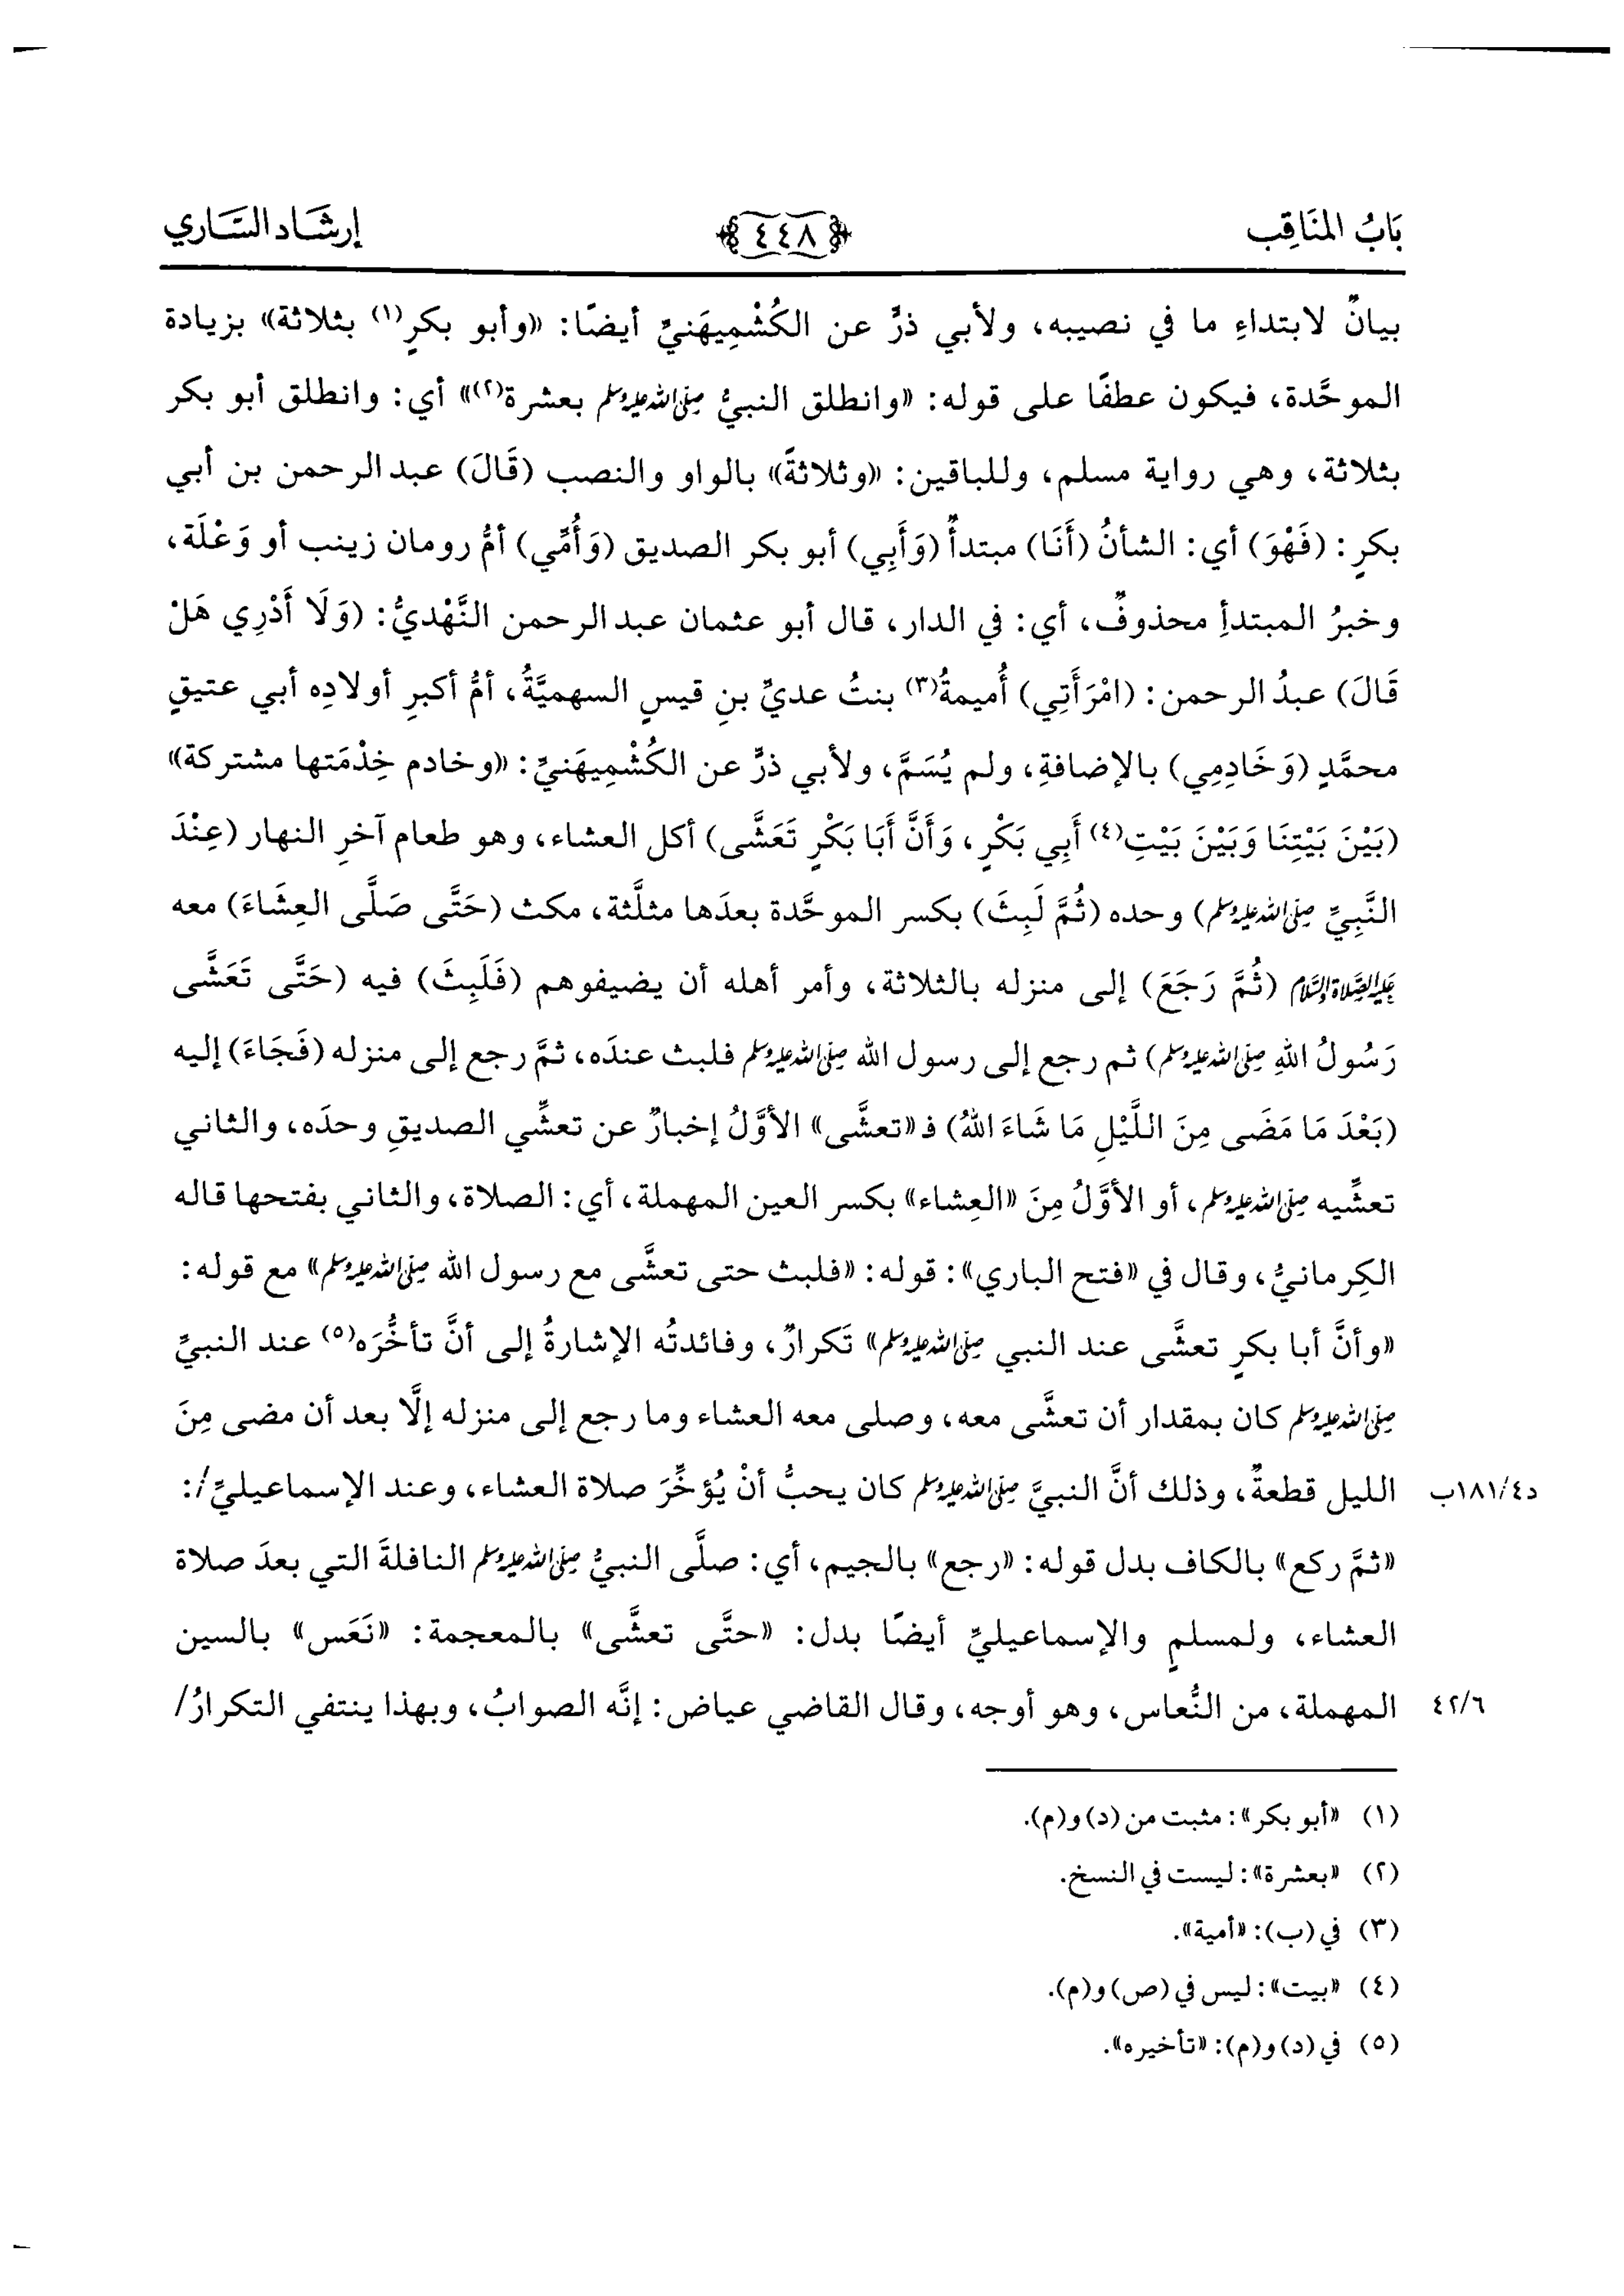 بَابُ المَنَاقِب
﴿٤٤٨﴾
إرشَاد السَّاري
بيانٌ لابتداءِ ما في نصيبه، ولأبي ذرٍّ عن الكُشْمِيهَنيِّ أيضًا: «وأبو بكرٍ(١) بثلاثة» بزيادة
الموحَّدة، فيكون عطفًا على قوله: «وانطلق النبيُّ صلى الله عليه وسلم بعشرة(٢)» أي: وانطلق أبو بكر
بثلاثة، وهي رواية مسلم، وللباقين: «وثلاثةً» بالواو والنصب (قَالَ) عبد الرحمن بن أبي
بكرٍ: (فَهْوَ) أي: الشأنُ (أَنَا) مبتدأٌ (وَأَبِي) أبو بكر الصديق (وَأُمِّي) أمُّ رومان زينب أو وَعْلَة،
وخبرُ المبتدأِ محذوفٌ، أي: في الدار، قال أبو عثمان عبد الرحمن النَّهْديُّ: (وَلَا أَدْرِي هَلْ
قَالَ) عبدُ الرحمن: (امْرَأَتِي) أُميمةُ(٣) بنتُ عديِّ بنِ قيسٍ السهميَّةُ، أمُّ أكبرِ أولادِه أبي عتيقٍ
محمَّدٍ (وَخَادِمِي) بالإضافةِ، ولم يُسَمَّ، ولأبي ذرٍّ عن الكُشْمِيهَنيِّ: «وخادم خِدْمَتها مشتركة»
(بَيْنَ بَيْتِنَا وَبَيْنَ بَيْتِ(٤) أَبِي بَكْرٍ، وَأَنَّ أَبَا بَكْرٍ تَعَشَّى) أكل العشاء، وهو طعام آخرِ النهار (عِنْدَ
النَّبِيِّ صلى الله عليه وسلم) وحده (ثُمَّ لَبِثَ) بكسر الموحَّدة بعدَها مثلَّثة، مكث (حَتَّى صَلَّى العِشَاءَ) معه
عليه الصلاة والسلام (ثُمَّ رَجَعَ) إلى منزله بالثلاثة، وأمر أهله أن يضيفوهم (فَلَبِثَ) فيه (حَتَّى تَعَشَّى
رَسُولُ اللهِ صلى الله عليه وسلم) ثم رجع إلى رسول الله صلى الله عليه وسلم فلبث عندَه، ثمَّ رجع إلى منزله (فَجَاءَ) إليه
(بَعْدَ مَا مَضَى مِنَ اللَّيْلِ مَا شَاءَ اللهُ) فـ«تعشَّى» الأوَّلُ إخبارٌ عن تعشِّي الصديقِ وحدَه، والثاني
تعشِّيه صلى الله عليه وسلم، أو الأوَّلُ مِنَ «العِشاء» بكسر العين المهملة، أي: الصلاة، والثاني بفتحها قاله
الكِرمانيُّ، وقال في «فتح الباري»: قوله: «فلبث حتى تعشَّى مع رسول الله صلى الله عليه وسلم» مع قوله:
«وأنَّ أبا بكرٍ تعشَّى عند النبي صلى الله عليه وسلم» تَكرارٌ، وفائدتُه الإشارةُ إلى أنَّ تأخُّرَه(٥) عند النبيِّ
صلى الله عليه وسلم كان بمقدار أن تعشَّى معه، وصلى معه العشاء وما رجع إلى منزله إلَّا بعد أن مضى مِنَ
الليل قطعةٌ، وذلك أنَّ النبيَّ صلى الله عليه وسلم كان يحبُّ أنْ يُؤخِّرَ صلاة العشاء، وعند الإسماعيليِّ/: د٤/١٨١ب
«ثمَّ ركع» بالكاف بدل قوله: «رجع» بالجيم، أي: صلَّى النبيُّ صلى الله عليه وسلم النافلةَ التي بعدَ صلاة
العشاء، ولمسلمٍ والإسماعيليِّ أيضًا بدل: «حتَّى تعشَّى» بالمعجمة: «نَعَس» بالسين
المهملة، من النُّعاس، وهو أوجه، وقال القاضي عياض: إنَّه الصوابُ، وبهذا ينتفي التكرارُ/ ٤٢/٦
(١) «أبو بكر»: مثبت من (د) و(م).
(٢) «بعشرة»: ليست في النسخ.
(٣) في (ب): «أمية».
(٤) «بيت»: ليس في (ص) و(م).
(٥) في (د) و(م): «تأخيره».